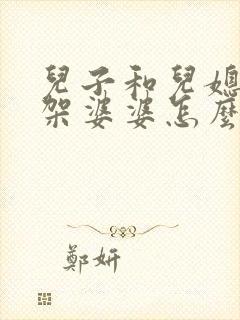 兒子和兒媳
架婆婆怎麼
鄭妍